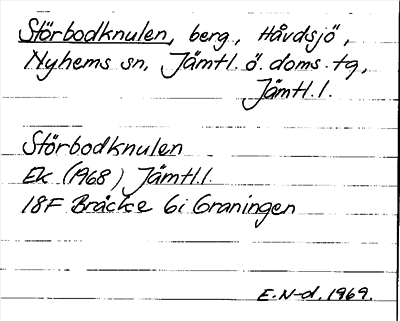 Störbodknulen, berg., Håvdsjö,
Nyhems sn, Jämtl. ö. doms. tg,
Jämtl. l.
Störbodknulen
Ek (1968) Jämtl. l.
18F Bräcke 6i Graningen
E. N-d. 1969.